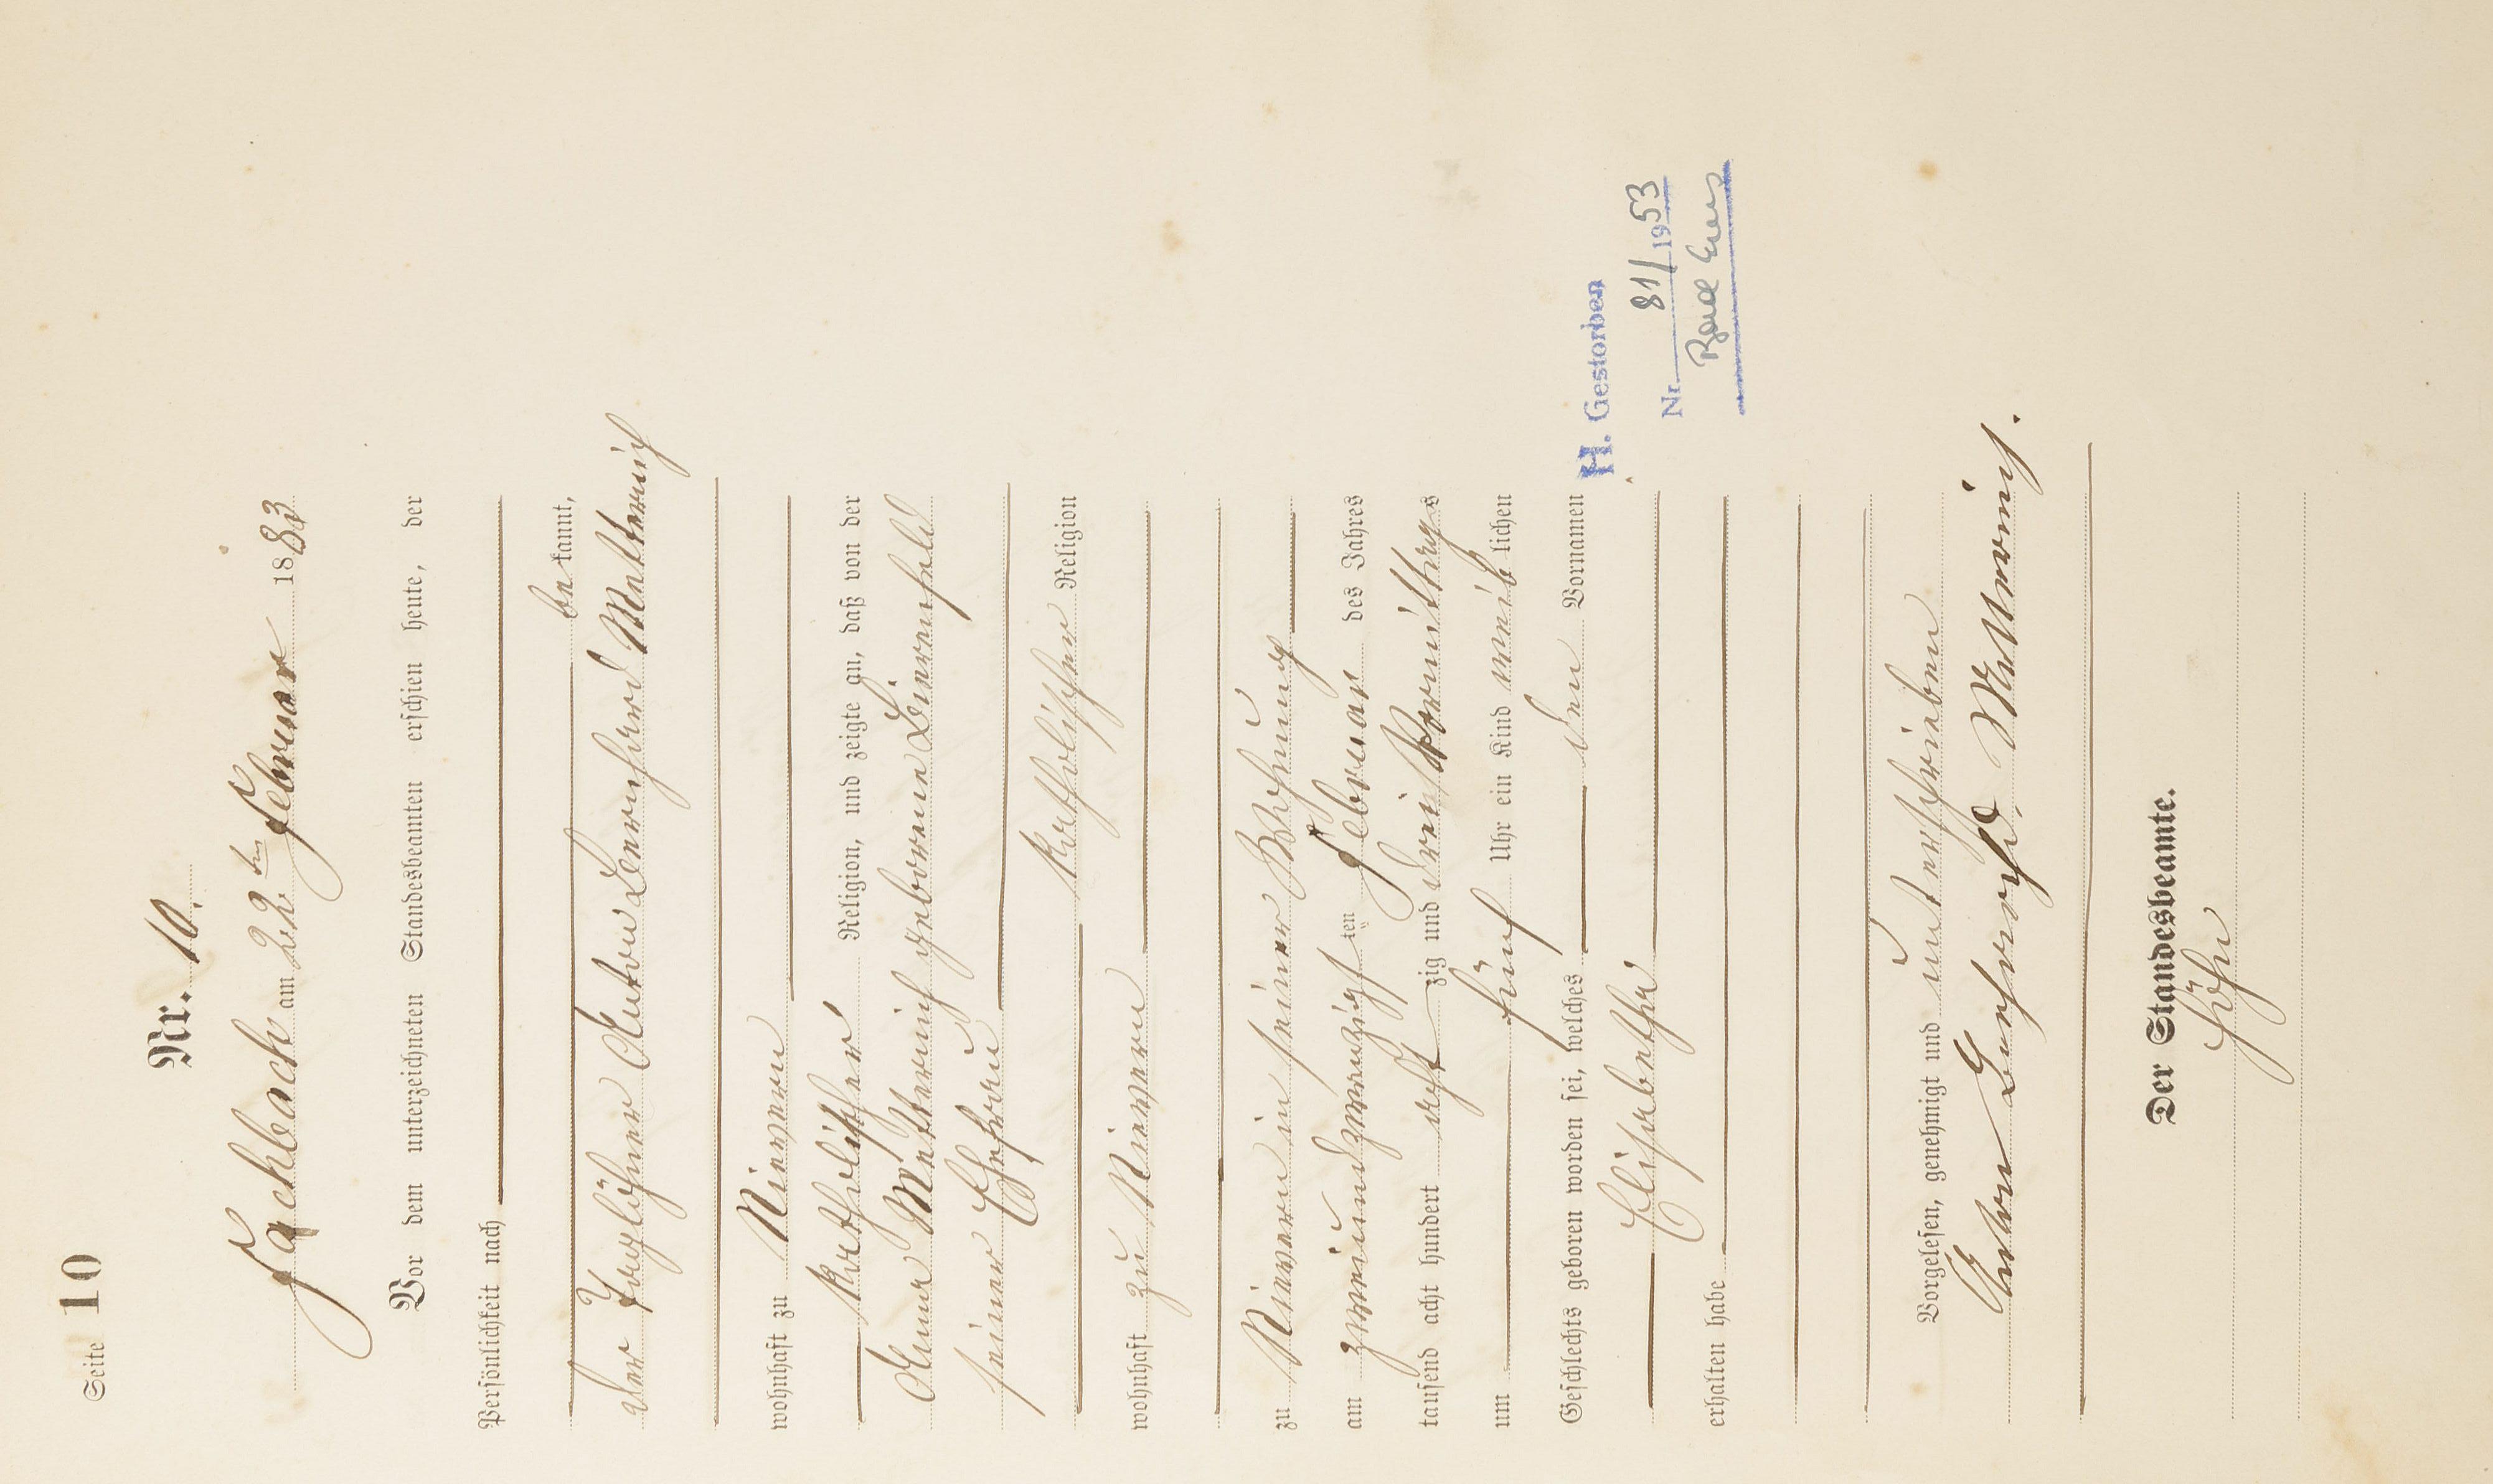 Seite 10
Nr. 10.
Fachbach am 22ten Februar 1883
Vor dem unterzeichneten Standesbeamten erschien heute, der
Persönlichkeit nach
bekannt,
der Taglöhner Anton Bernhard Metternich
wohnhaft zu Nievern
katholischer Religion, und zeigte an, daß von der
Anna Metternich geborene Bierenfeld
seiner Ehefrau
katholischer Religion
wohnhaft zu Nievern
zu Nievern in seiner Wohnung
am zweiundzwanzigsten Februar des Jahres
tausend acht hundert achtzig und drei Vormittags
um fünf Uhr ein Kind weiblichen
Geschlechts geboren worden sei, welches den Vornamen
H. Gestorben
Elisabetha
Nr. 81/1953
erhalten habe
Vorgelesen, genehmigt und unterschrieben
Anton Bernhard Metternich.
Der Standesbeamte.
Höhn